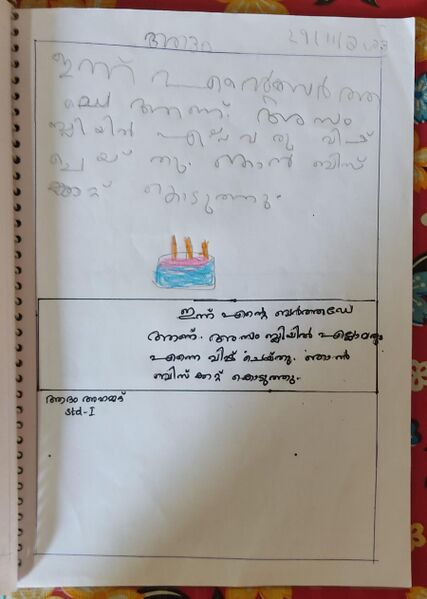 ആദം 29/11/2023
ഇന്ന് എന്റെ ബർത്ത
ഡേ ആണ്. അസം
ബ്ലിയിൽ എല്ലവരു വിഷ്
ചെയ്തു. ഞാൻ ബിസ്
ക്കറ്റ് കൊടുത്തു.
ഇന്ന് എന്റെ ബർത്തഡേ
ആണ്. അസംബ്ലിയിൽ എല്ലാവരും
എന്നെ വിഷ് ചെയ്തു. ഞാൻ
ബിസ്ക്കറ്റ് കൊടുത്തു.
ആദം അഹമ്മദ്
std-I